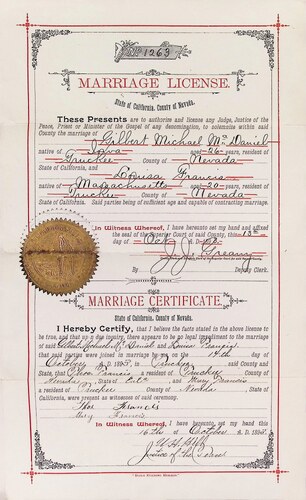 No. 1263
MARRIAGE LICENSE.
State of California, County of Nevada.
These Presents are to authorize and license any Judge, Justice of the
Peace, Priest or Minister of the Gospel of any denomination, to solemnize within said
County the marriage of Gilbert Michael McDaniel
native of Iowa aged 26 years, resident of
Truckee County of Nevada
State of California, and Louisa Francis
native of Massachusetts aged 20 years, resident of
Truckee County of Nevada
State of California. Said parties being of sufficient age and capable of contracting marriage.
In Witness Whereof, I have hereunto set my hand and affixed
the seal of the Superior Court of said County, this 13th
day of Oct
J. J. Greany
By Deputy Clerk.
MARRIAGE CERTIFICATE.
State of California, County of Nevada.
I Hereby Certify, that I believe the facts stated in the above license
to be true, and that on due inquiry, there appears to be no legal impediment to the marriage
of said and Louisa
that said parties were joined in marriage by me on the 14th day of
October A. D. in Truckee said County and
State, that Thos Francis a resident of Truckee County of
Nevada State of Cal and Mary Francis
a resident of Truckee County of Nevada State of
California, were present as witnesses of said ceremony.
Thos Francis
Mary Francis
In Witness Whereof, I have hereunto set my hand this
16th October A. D.
Justice of the Peace